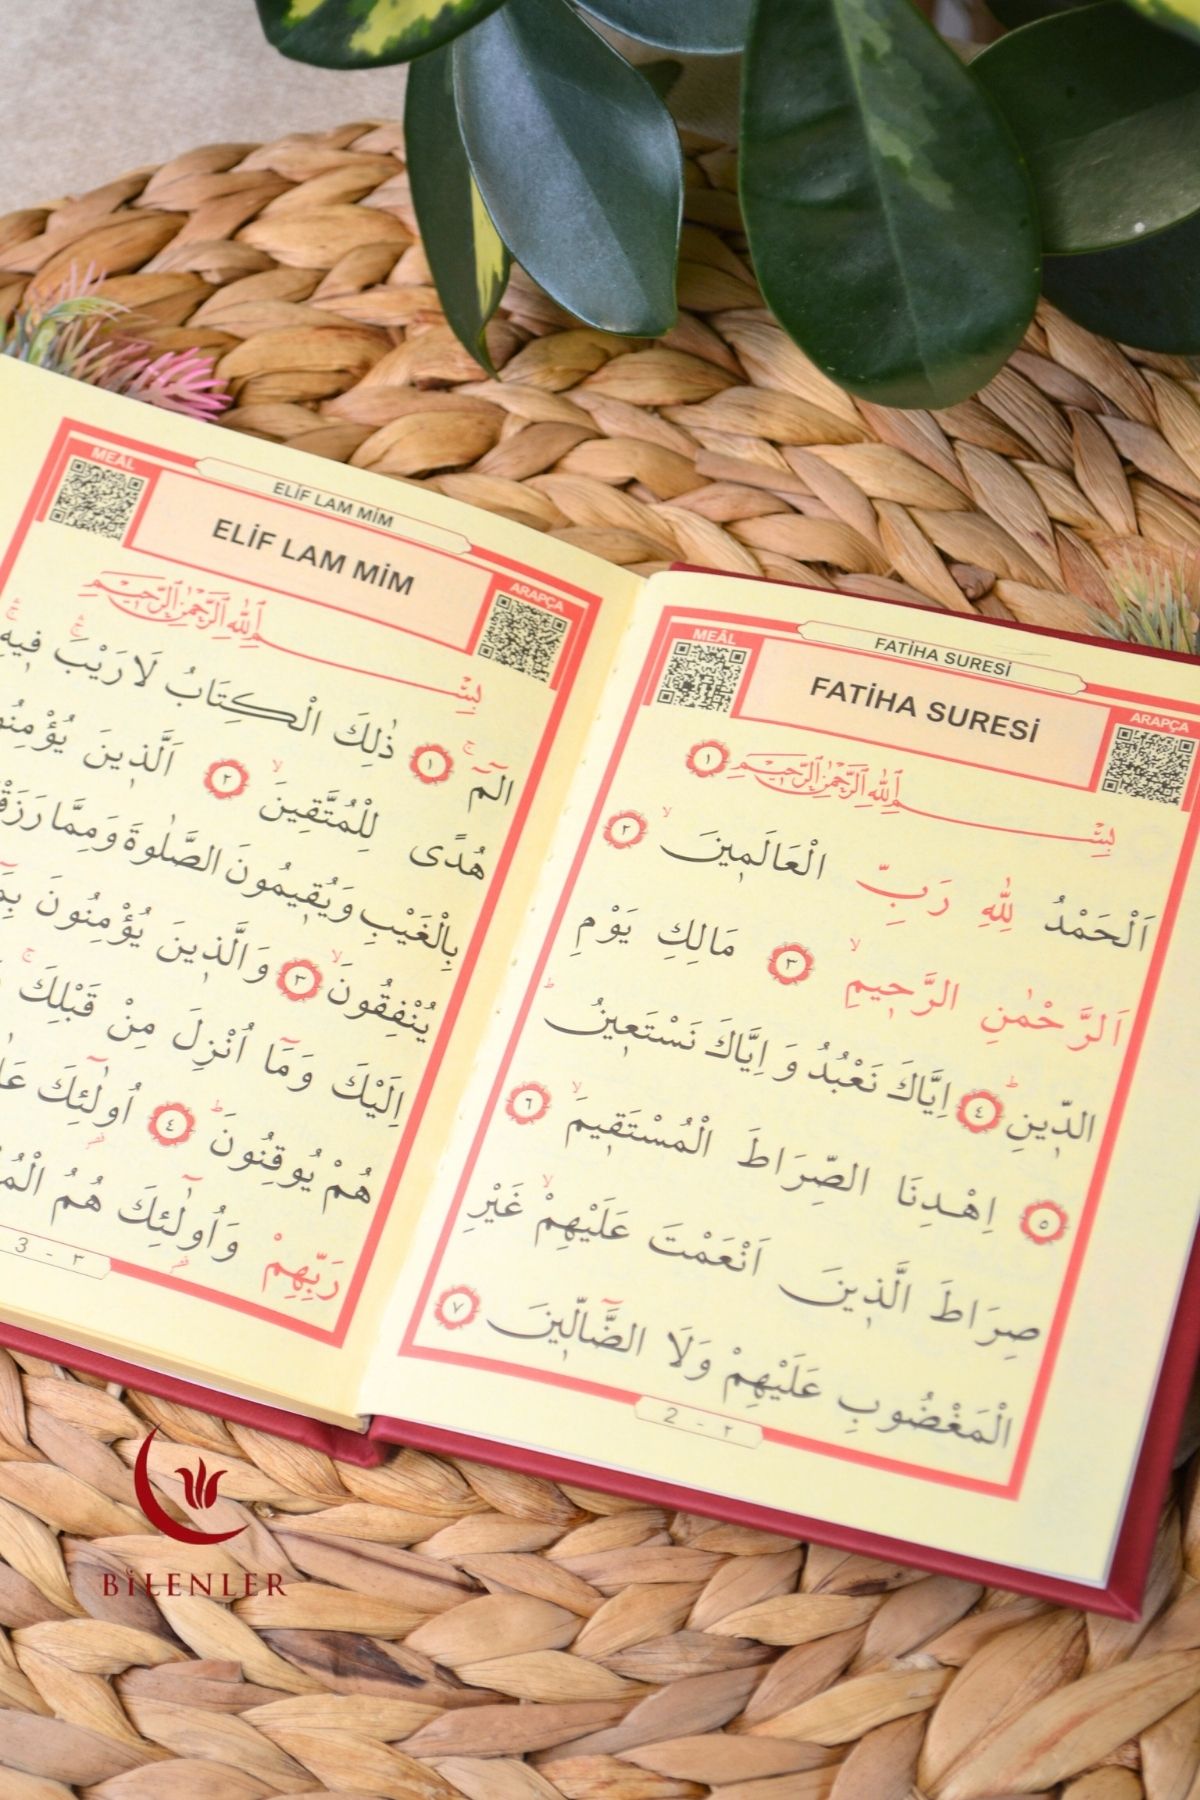 FATİHA SURESİ
MEÂL
FATİHA SURESİ
ARAPÇA
بِسْمِ اللهِ الرَّحْمٰنِ الرَّحِيمِ ١
اَلْحَمْدُ لِلّٰهِ رَبِّ الْعَالَمِينَ ٢
اَلرَّحْمٰنِ الرَّحِيمِ ٣ مَالِكِ يَوْمِ
الدِّينِ ٤ اِيَّاكَ نَعْبُدُ وَ اِيَّاكَ نَسْتَعِينُ
٥ اِهْدِنَا الصِّرَاطَ الْمُسْتَقِيمَ ٦
صِرَاطَ الَّذِينَ اَنْعَمْتَ عَلَيْهِمْ غَيْرِ
الْمَغْضُوبِ عَلَيْهِمْ وَلَا الضَّٓالِّينَ ٧
2 - ٢
ELİF LAM MİM
MEÂL
ELİF LAM MİM
ARAPÇA
بِسْمِ اللهِ الرَّحْمٰنِ الرَّحِيمِ
الٓمٓ ١ ذٰلِكَ الْكِتَابُ لَا رَيْبَ فِيهِ
هُدًى لِلْمُتَّقِينَ ٢ اَلَّذِينَ
بِالْغَيْبِ وَيُقِيمُونَ الصَّلٰوةَ
يُنْفِقُونَ ٣ وَالَّذِينَ يُؤْمِنُونَ
اِلَيْكَ وَمَٓا اُنْزِلَ مِنْ قَبْلِكَ
هُمْ يُوقِنُونَ ٤ اُولٰٓئِكَ
رَبِّهِمْ وَاُولٰٓئِكَ هُمُ
3 - ٣
BİLENLER